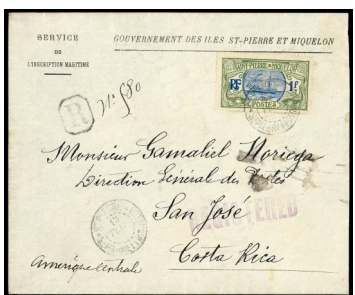 SERVICE
DE
L'INSCRIPTION MARITIME
GOUVERNEMENT DES ILES ST-PIERRE ET MIQUELON
SAINT-PIERRE & MIQUELON
RF 1F
POSTES
R
N° 580
Monsieur Gamaliel Noriega
Direction Générale des Postes
San José
REGISTERED
Costa Rica
Amérique Centrale